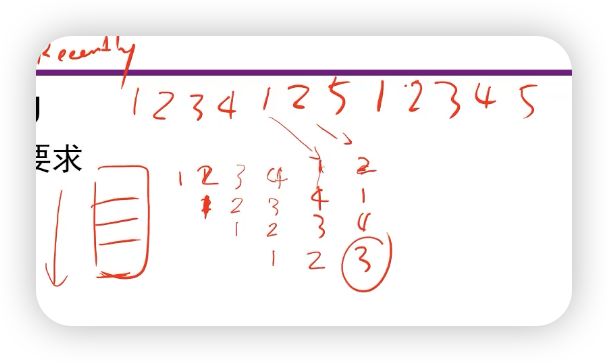 Recently
1 2 3 4 1 2 5 1 2 3 4 5
要求
1 2 3 4 1 2
1 2 3 4 1
1 2 3 4
1 2 3